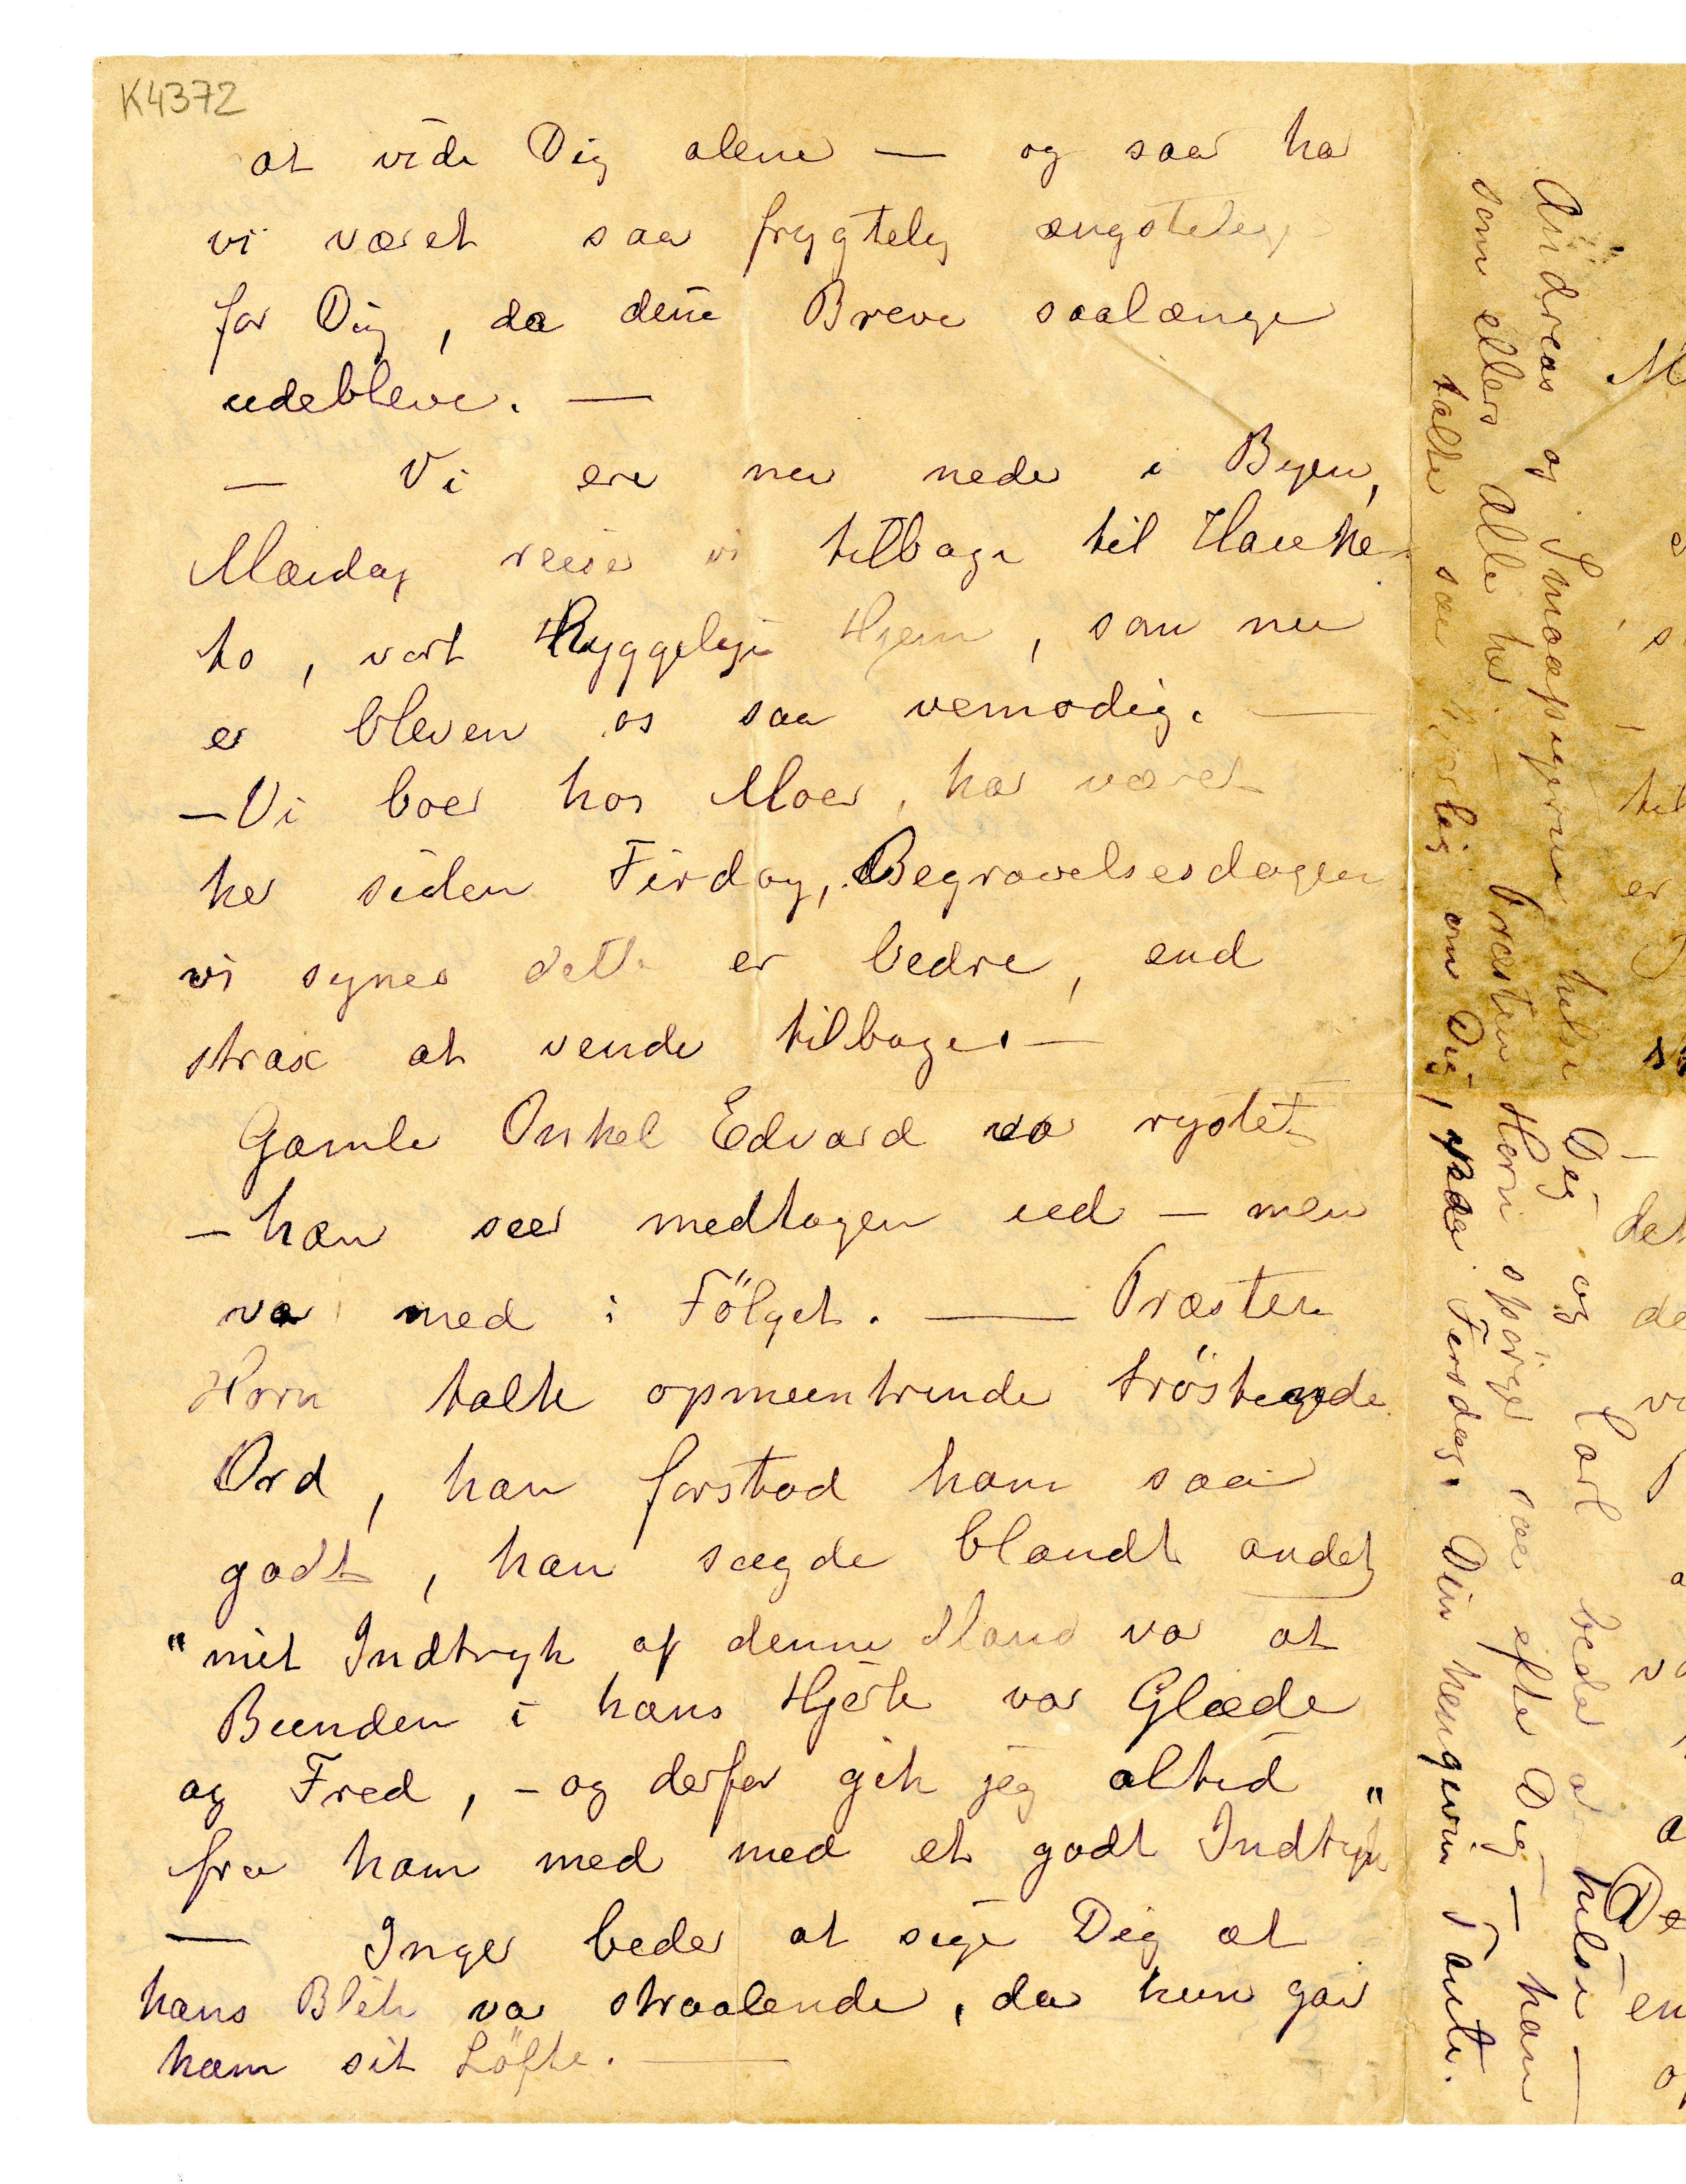 K4372
at vide Dig alene — og saa har
vi været saa frygtelig ængstelige
for Dig, da dine Breve saalænge
udebleve. —
— Vi ere nu nede i Byen,
Mandag reise vi tilbage til Hauke-
to, vort hyggelige Hjem, som nu
er bleven os saa vemodig. —
— Vi boer hos Moer, har været
her siden Firdag, Begravelsesdagen
vi synes dette er bedre, end
strax at vende tilbage. —
Gamle Onkel Edvard var rystet
— han seer medtagen ud — men
var med i Fölget. — Præsten
Horn talte opmuntrende tröstende
Ord, han forstod ham saa
godt, han sagde blandt andet
"mit Indtryk af denne Mand var at
Bunden i hans Hjerte var Glæde
og Fred, - og derfor gik jeg altid "
fra ham med med et godt Indtryk
— Inger beder at sige Dig at
hans Blik var straalende, da hun gav
ham sit Löfte. —
Andreas og Smaapigerne hilse Dig og Carl beder at hilse —
som ellers Alle her. — Præsten Horn spörger saa efter Dig — han
talte saa hjerlig om Dig, paa Firsdag. Din hengivne Tante.
M
til
er
det
de
De
en